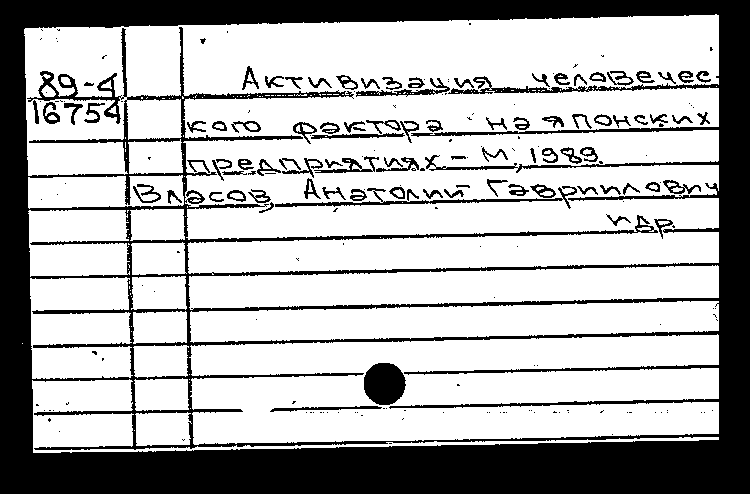 89-4 Активизация человечес-
16754 кого фактора на японских
предприятиях - М, 1989
Власов, Анатолий Гавриилович
и др